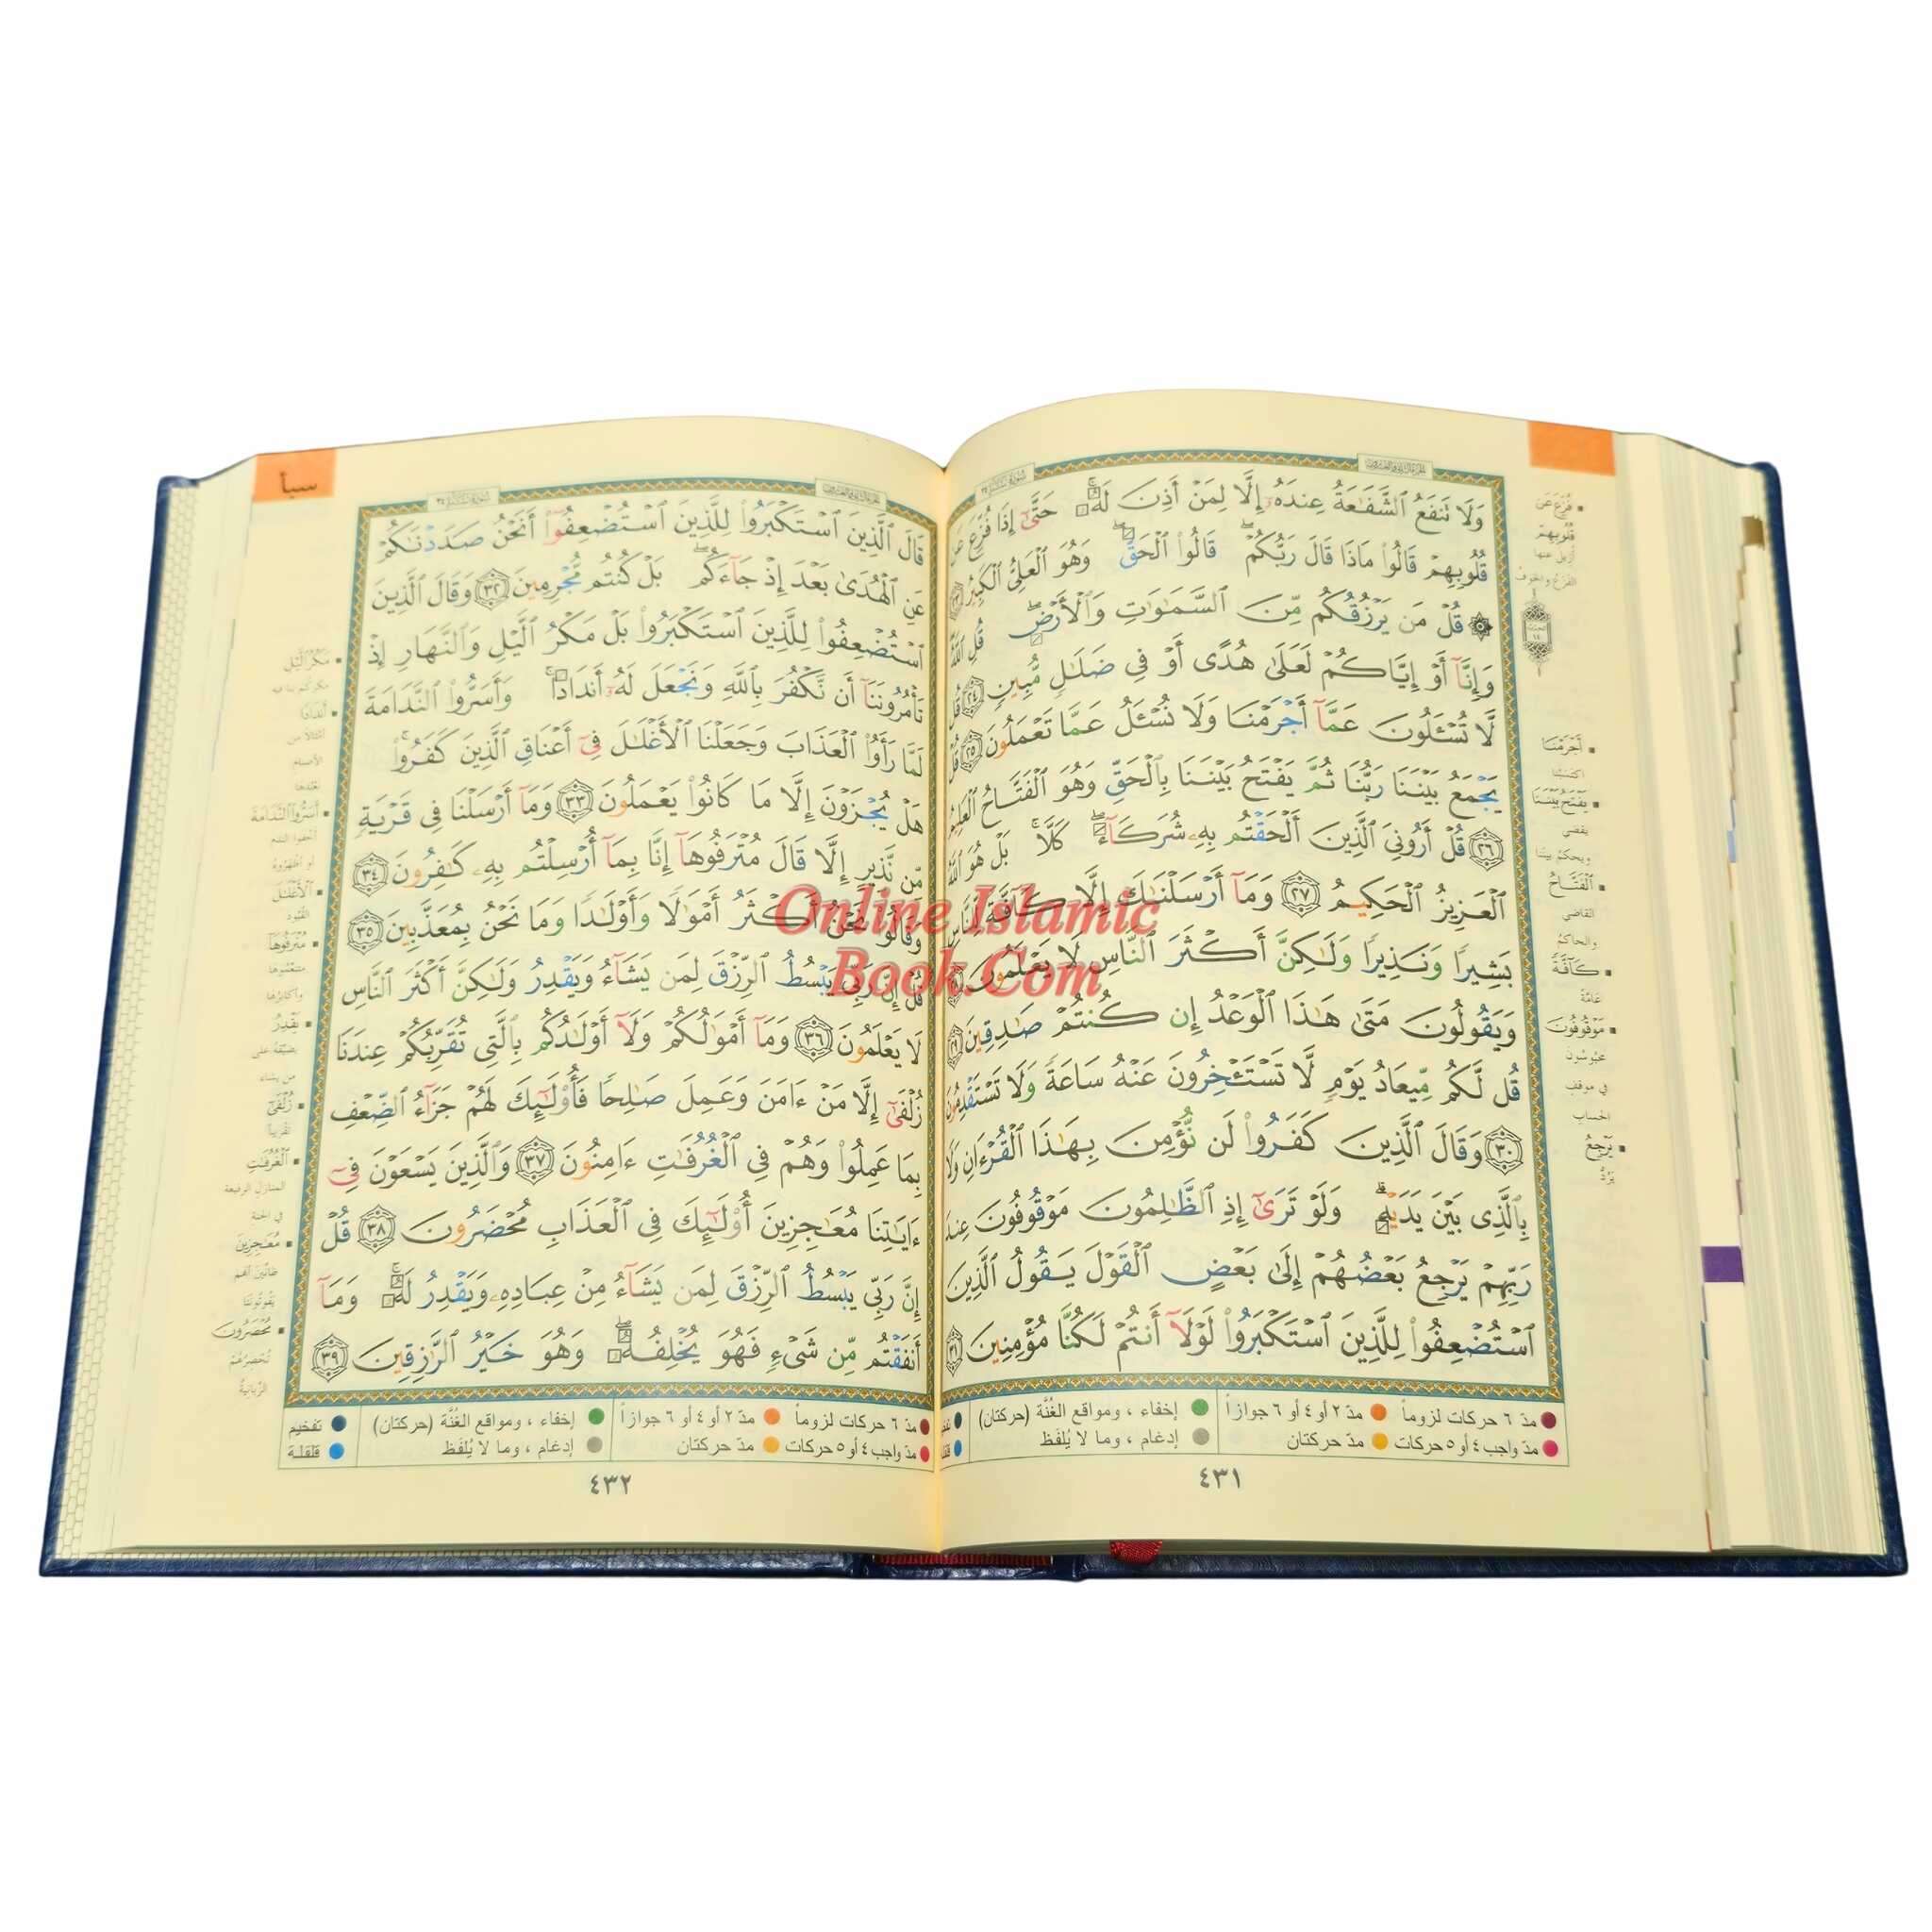 وَلَا تَنفَعُ ٱلشَّفَٰعَةُ عِندَهُۥٓ إِلَّا لِمَنۡ أَذِنَ لَهُۥۚ حَتَّىٰٓ إِذَا فُزِّعَ
قُلُوبِهِمۡ قَالُواْ مَاذَا قَالَ رَبُّكُمۡۖ قَالُواْ ٱلۡحَقَّۖ وَهُوَ ٱلۡعَلِيُّ ٱلۡكَبِيرُ ٢٣
۞ قُلۡ مَن يَرۡزُقُكُم مِّنَ ٱلسَّمَٰوَٰتِ وَٱلۡأَرۡضِۖ قُلِ ٱللَّهُ
وَإِنَّآ أَوۡ إِيَّاكُمۡ لَعَلَىٰ هُدًى أَوۡ فِي ضَلَٰلٖ مُّبِينٖ ٢٤ قُل
لَّا تُسۡـَٔلُونَ عَمَّآ أَجۡرَمۡنَا وَلَا نُسۡـَٔلُ عَمَّا تَعۡمَلُونَ ٢٥ قُلۡ
يَجۡمَعُ بَيۡنَنَا رَبُّنَا ثُمَّ يَفۡتَحُ بَيۡنَنَا بِٱلۡحَقِّ وَهُوَ ٱلۡفَتَّاحُ ٱلۡعَلِيمُ
٢٦ قُلۡ أَرُونِيَ ٱلَّذِينَ أَلۡحَقۡتُم بِهِۦ شُرَكَآءَۖ كَلَّاۚ بَلۡ هُوَ ٱللَّهُ
ٱلۡعَزِيزُ ٱلۡحَكِيمُ ٢٧ وَمَآ أَرۡسَلۡنَٰكَ إِلَّا كَآفَّةٗ لِّلنَّاسِ
بَشِيرٗا وَنَذِيرٗا وَلَٰكِنَّ أَكۡثَرَ ٱلنَّاسِ لَا يَعۡلَمُونَ
وَيَقُولُونَ مَتَىٰ هَٰذَا ٱلۡوَعۡدُ إِن كُنتُمۡ صَٰدِقِينَ ٢٩
قُل لَّكُم مِّيعَادُ يَوۡمٖ لَّا تَسۡتَـٔۡخِرُونَ عَنۡهُ سَاعَةٗ وَلَا تَسۡتَقۡدِمُونَ
٣٠ وَقَالَ ٱلَّذِينَ كَفَرُواْ لَن نُّؤۡمِنَ بِهَٰذَا ٱلۡقُرۡءَانِ وَلَا
بِٱلَّذِي بَيۡنَ يَدَيۡهِۗ وَلَوۡ تَرَىٰٓ إِذِ ٱلظَّٰلِمُونَ مَوۡقُوفُونَ عِندَ
رَبِّهِمۡ يَرۡجِعُ بَعۡضُهُمۡ إِلَىٰ بَعۡضٍ ٱلۡقَوۡلَ يَقُولُ ٱلَّذِينَ
ٱسۡتُضۡعِفُواْ لِلَّذِينَ ٱسۡتَكۡبَرُواْ لَوۡلَآ أَنتُمۡ لَكُنَّا مُؤۡمِنِينَ ٣١
فُزِّعَ عَن
قُلُوبِهِمۡ
أزيل عنها
الفزع والخوف
أَجۡرَمۡنَا
اكتسبنا
يَفۡتَحُ بَيۡنَنَا
يقضي
ويحكم بيننا
ٱلۡفَتَّاحُ
القاضي
والحاكم
كَآفَّةٗ
عامّة
مَوۡقُوفُونَ
محبوسون
في موقف
الحساب
يَرۡجِعُ
يَرُدُّ
مدّ ٦ حركات لزوماً مدّ ٢ أو ٤ أو ٦ جوازاً إخفاء ، ومواقع الغُنّة (حركتان)
مدّ واجب ٤ أو ٥ حركات مدّ حركتان إدغام ، وما لا يُلفَظ
٤٣١
سبأ
قَالَ ٱلَّذِينَ ٱسۡتَكۡبَرُواْ لِلَّذِينَ ٱسۡتُضۡعِفُوٓاْ أَنَحۡنُ صَدَدۡنَٰكُمۡ
عَنِ ٱلۡهُدَىٰ بَعۡدَ إِذۡ جَآءَكُمۖ بَلۡ كُنتُم مُّجۡرِمِينَ ٣٢ وَقَالَ ٱلَّذِينَ
ٱسۡتُضۡعِفُواْ لِلَّذِينَ ٱسۡتَكۡبَرُواْ بَلۡ مَكۡرُ ٱلَّيۡلِ وَٱلنَّهَارِ إِذۡ
تَأۡمُرُونَنَآ أَن نَّكۡفُرَ بِٱللَّهِ وَنَجۡعَلَ لَهُۥٓ أَندَادٗاۚ وَأَسَرُّواْ ٱلنَّدَامَةَ
لَمَّا رَأَوُاْ ٱلۡعَذَابَ وَجَعَلۡنَا ٱلۡأَغۡلَٰلَ فِيٓ أَعۡنَاقِ ٱلَّذِينَ كَفَرُواْۚ
هَلۡ يُجۡزَوۡنَ إِلَّا مَا كَانُواْ يَعۡمَلُونَ ٣٣ وَمَآ أَرۡسَلۡنَا فِي قَرۡيَةٖ
مِّن نَّذِيرٍ إِلَّا قَالَ مُتۡرَفُوهَآ إِنَّا بِمَآ أُرۡسِلۡتُم بِهِۦ كَٰفِرُونَ ٣٤
وَقَالُواْ نَحۡنُ أَكۡثَرُ أَمۡوَٰلٗا وَأَوۡلَٰدٗا وَمَا نَحۡنُ بِمُعَذَّبِينَ ٣٥
قُلۡ إِنَّ رَبِّي يَبۡسُطُ ٱلرِّزۡقَ لِمَن يَشَآءُ وَيَقۡدِرُ وَلَٰكِنَّ أَكۡثَرَ ٱلنَّاسِ
لَا يَعۡلَمُونَ ٣٦ وَمَآ أَمۡوَٰلُكُمۡ وَلَآ أَوۡلَٰدُكُم بِٱلَّتِي تُقَرِّبُكُمۡ عِندَنَا
زُلۡفَىٰٓ إِلَّا مَنۡ ءَامَنَ وَعَمِلَ صَٰلِحٗا فَأُوْلَٰٓئِكَ لَهُمۡ جَزَآءُ ٱلضِّعۡفِ
بِمَا عَمِلُواْ وَهُمۡ فِي ٱلۡغُرُفَٰتِ ءَامِنُونَ ٣٧ وَٱلَّذِينَ يَسۡعَوۡنَ فِيٓ
ءَايَٰتِنَا مُعَٰجِزِينَ أُوْلَٰٓئِكَ فِي ٱلۡعَذَابِ مُحۡضَرُونَ ٣٨ قُلۡ
إِنَّ رَبِّي يَبۡسُطُ ٱلرِّزۡقَ لِمَن يَشَآءُ مِنۡ عِبَادِهِۦ وَيَقۡدِرُ لَهُۥۚ وَمَآ
أَنفَقۡتُم مِّن شَيۡءٖ فَهُوَ يُخۡلِفُهُۥۖ وَهُوَ خَيۡرُ ٱلرَّٰزِقِينَ ٣٩
مَكۡرُ ٱلَّيۡلِ
أَندَادٗا
أمثالا من
الأصنام
نعبدها
أَسَرُّواْ ٱلنَّدَامَةَ
أخفوا الندم
أو أظهروه
ٱلۡأَغۡلَٰلَ
القيود
مُتۡرَفُوهَآ
متنعموها
وأكابرها
يَقۡدِرُ
يضيقه على
من يشاء
زُلۡفَىٰٓ
تقريبا
ٱلۡغُرُفَٰتِ
المنازل الرفيعة
في الجنة
مُعَٰجِزِينَ
ظانين أنهم
يفوتوننا
مُحۡضَرُونَ
تحضرهم
الزبانية
مدّ ٦ حركات لزوماً مدّ ٢ أو ٤ أو ٦ جوازاً إخفاء ، ومواقع الغُنّة (حركتان) تفخيم
مدّ واجب ٤ أو ٥ حركات مدّ حركتان إدغام ، وما لا يُلفَظ قلقلة
٤٣٢
Online Islamic
Book.Com